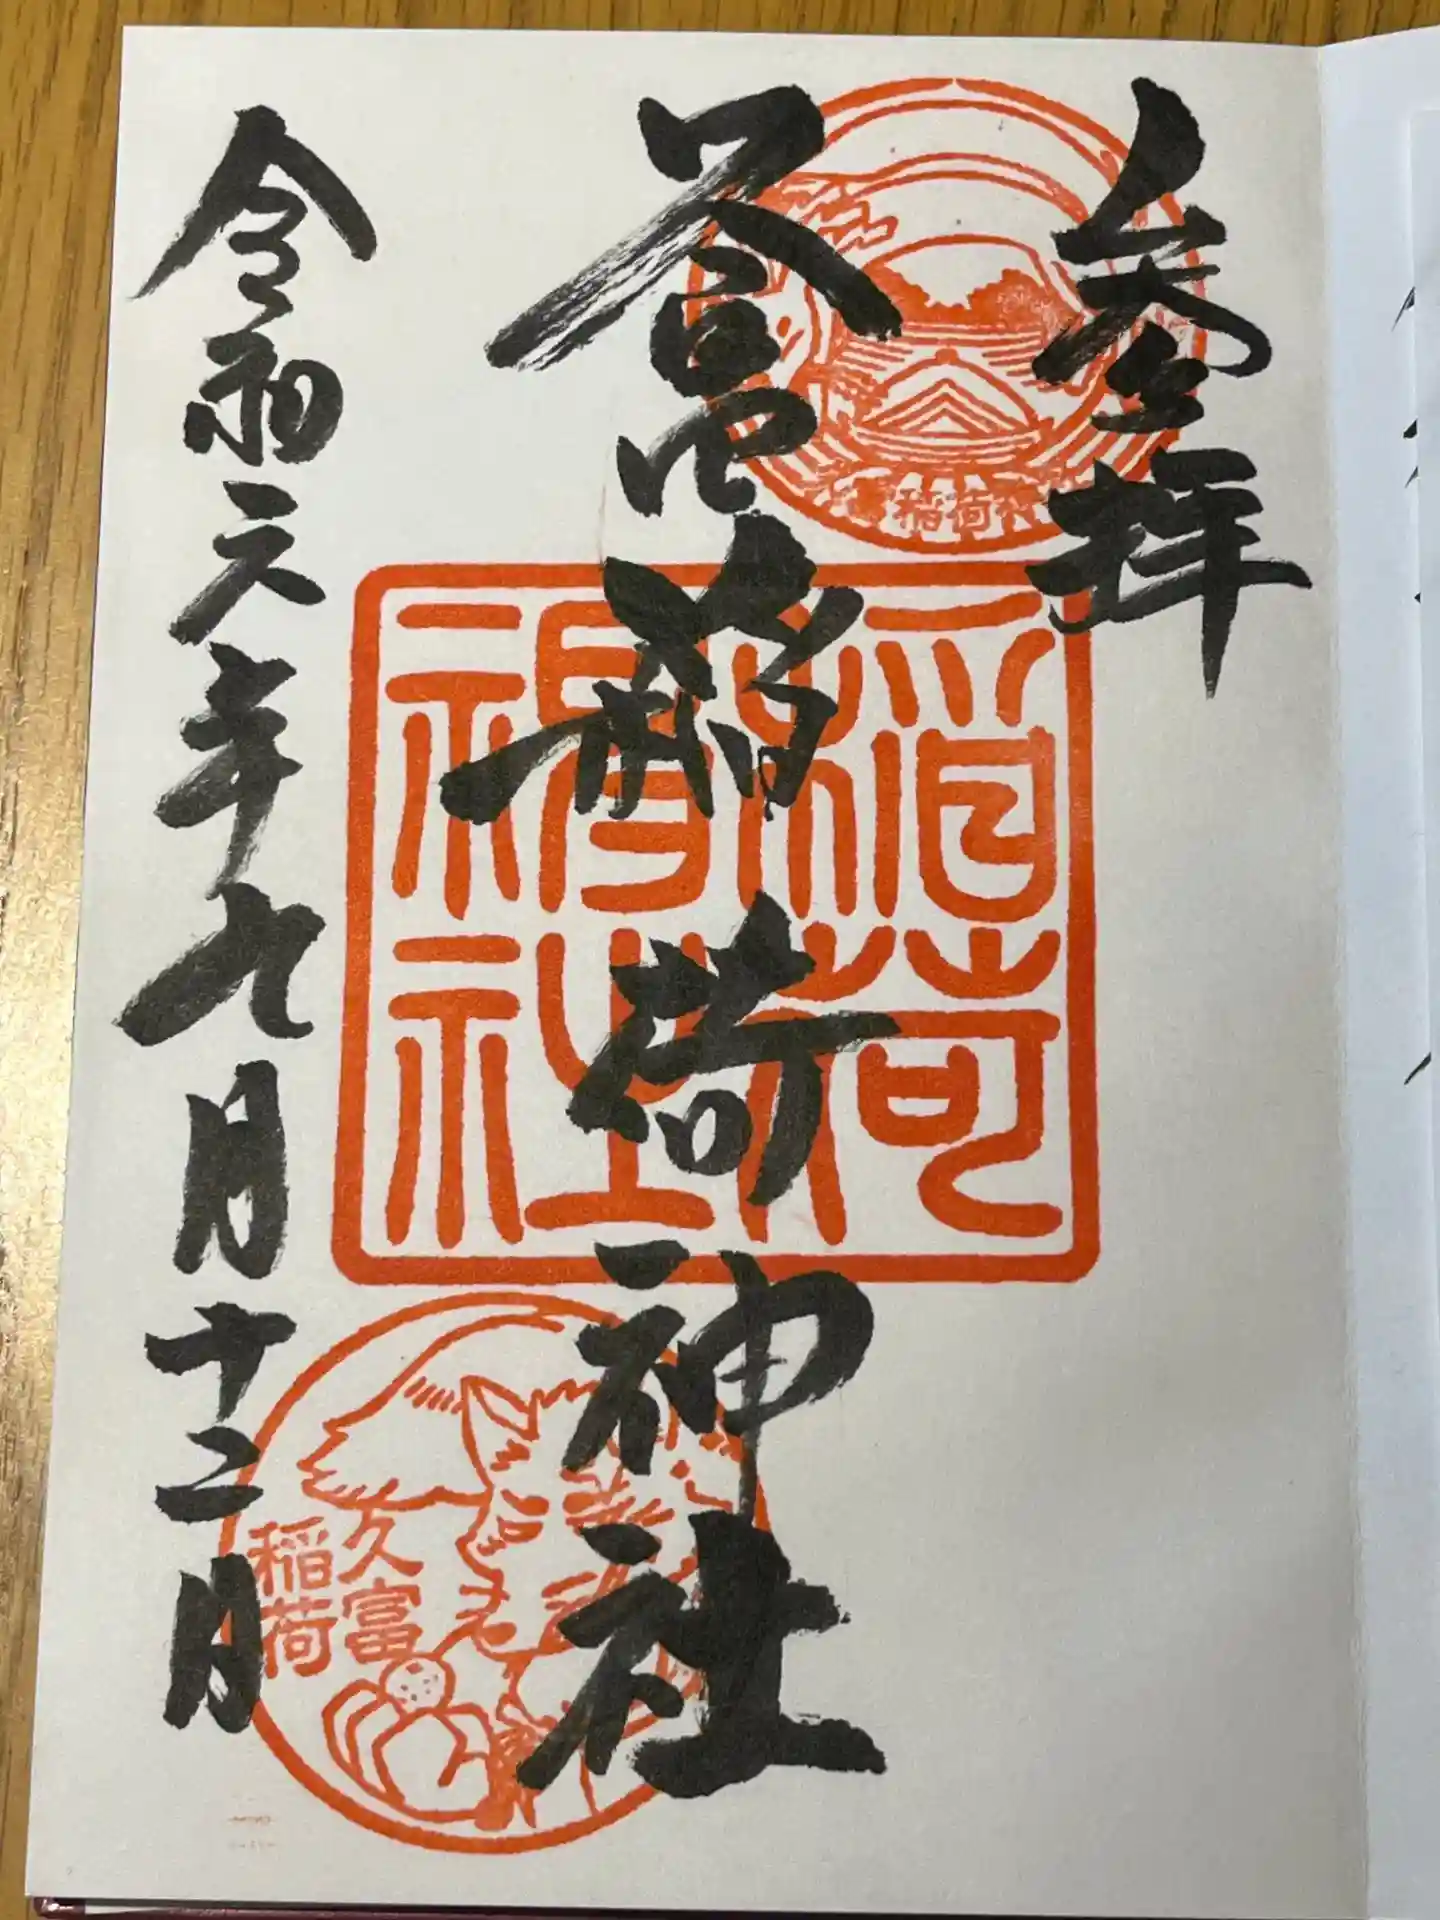 参拝
久富稲荷神社
令和六年九月十二日
富稲荷神
稲荷
神社
久富
稲荷